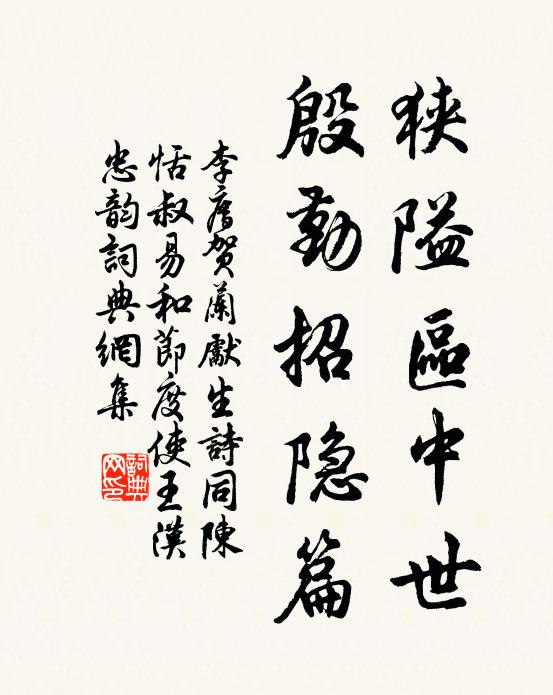 狹隘區中世
殷勤招隐篇
李膺贺蘭獻生詩同陳
恬叔易和節度使王漢
忠韵詞典網集